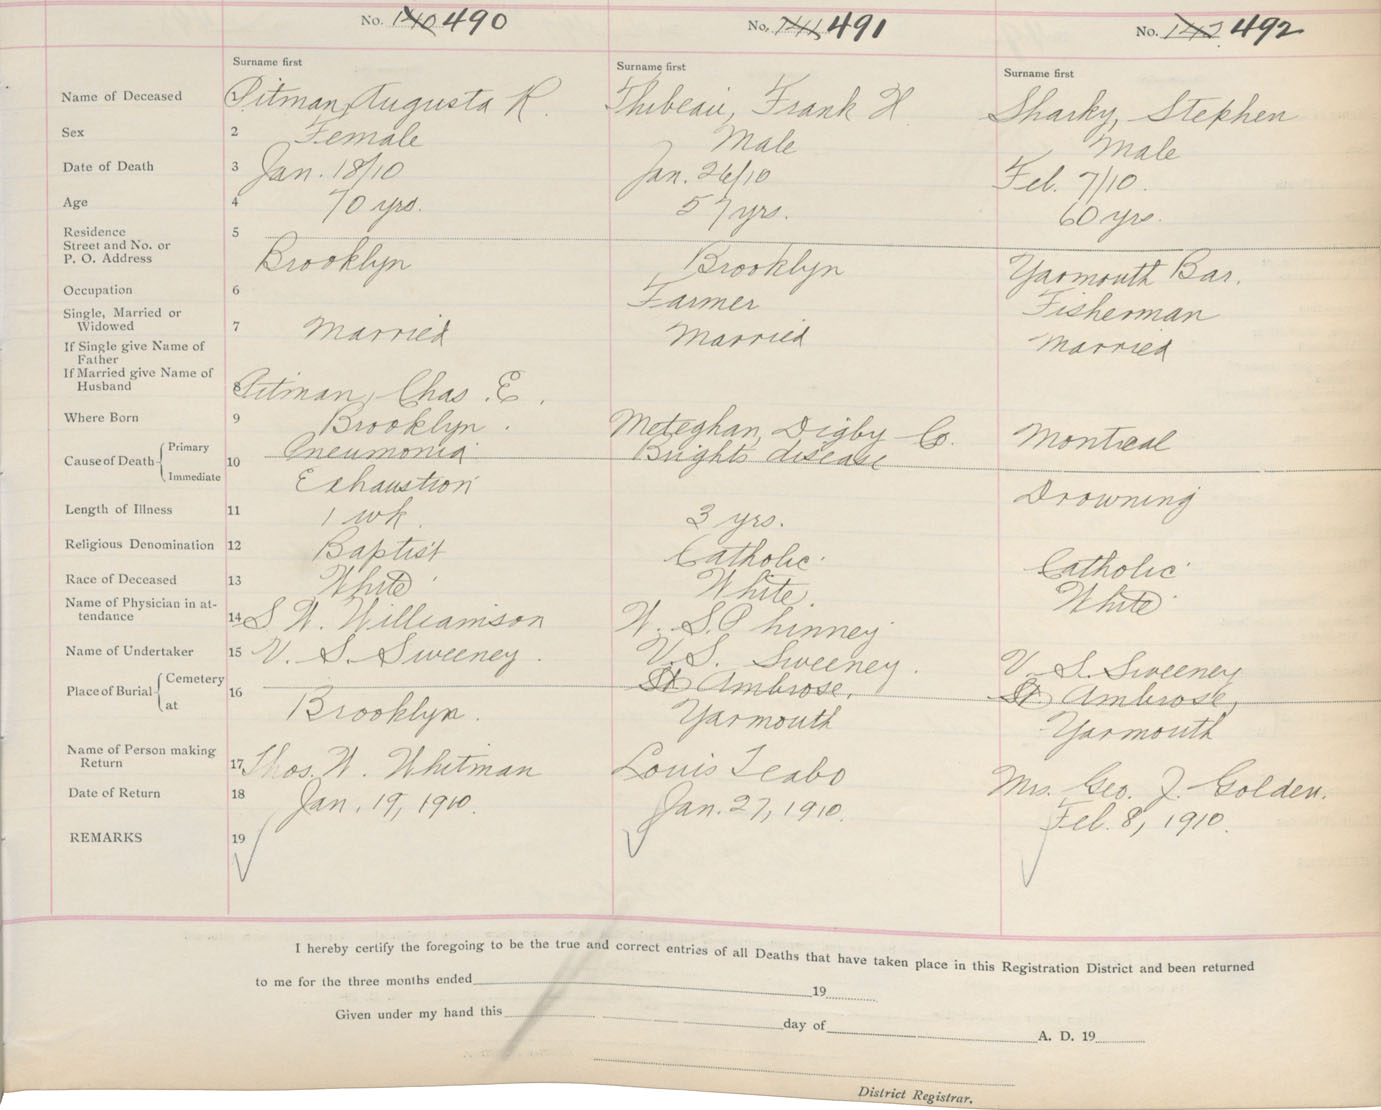 No. 140 490 No. 141 491 No. 142 492
Surname first Surname first Surname first
Name of Deceased 1 Pitman, Augusta R. Thibeau, Frank H Sharky, Stephen
Sex 2 Female Male Male
Date of Death 3 Jan. 18/10 Jan. 26/10 Feb. 7/10.
Age 4 70 yrs. 57 yrs. 60 yrs.
Residence 5
Street and No. or
P. O. Address Brooklyn Brooklyn Yarmouth Bar.
Occupation 6 Farmer Fisherman
Single, Married or
Widowed 7 Married Married Married
If Single give Name of
Father
If Married give Name of
Husband 8 Pitman, Chas. E.
Where Born 9 Brooklyn. Meteghan, Digby Co. Montreal
Cause of Death Primary 10 Pneumonia Brights disease
Immediate Exhaustion Drowning
Length of Illness 11 1 wk. 3 yrs.
Religious Denomination 12 Baptist Catholic Catholic
Race of Deceased 13 White White. White
Name of Physician in at-
tendance 14 S W. Williamson W. S. Phinney
Name of Undertaker 15 V. S. Sweeney. V. S. Sweeney. V. S. Sweeney
Place of Burial Cemetery 16 St Ambrose, St. Ambrose,
at Brooklyn. Yarmouth Yarmouth
Name of Person making
Return 17 Thos. W. Whitman Louis Teabo Mrs. Geo. J. Golden.
Date of Return 18 Jan. 19, 1910. Jan. 27, 1910. Feb. 8, 1910.
REMARKS 19
I hereby certify the foregoing to be the true and correct entries of all Deaths that have taken place in this Registration District and been returned
to me for the three months ended 19
Given under my hand this day of A. D. 19
District Registrar.